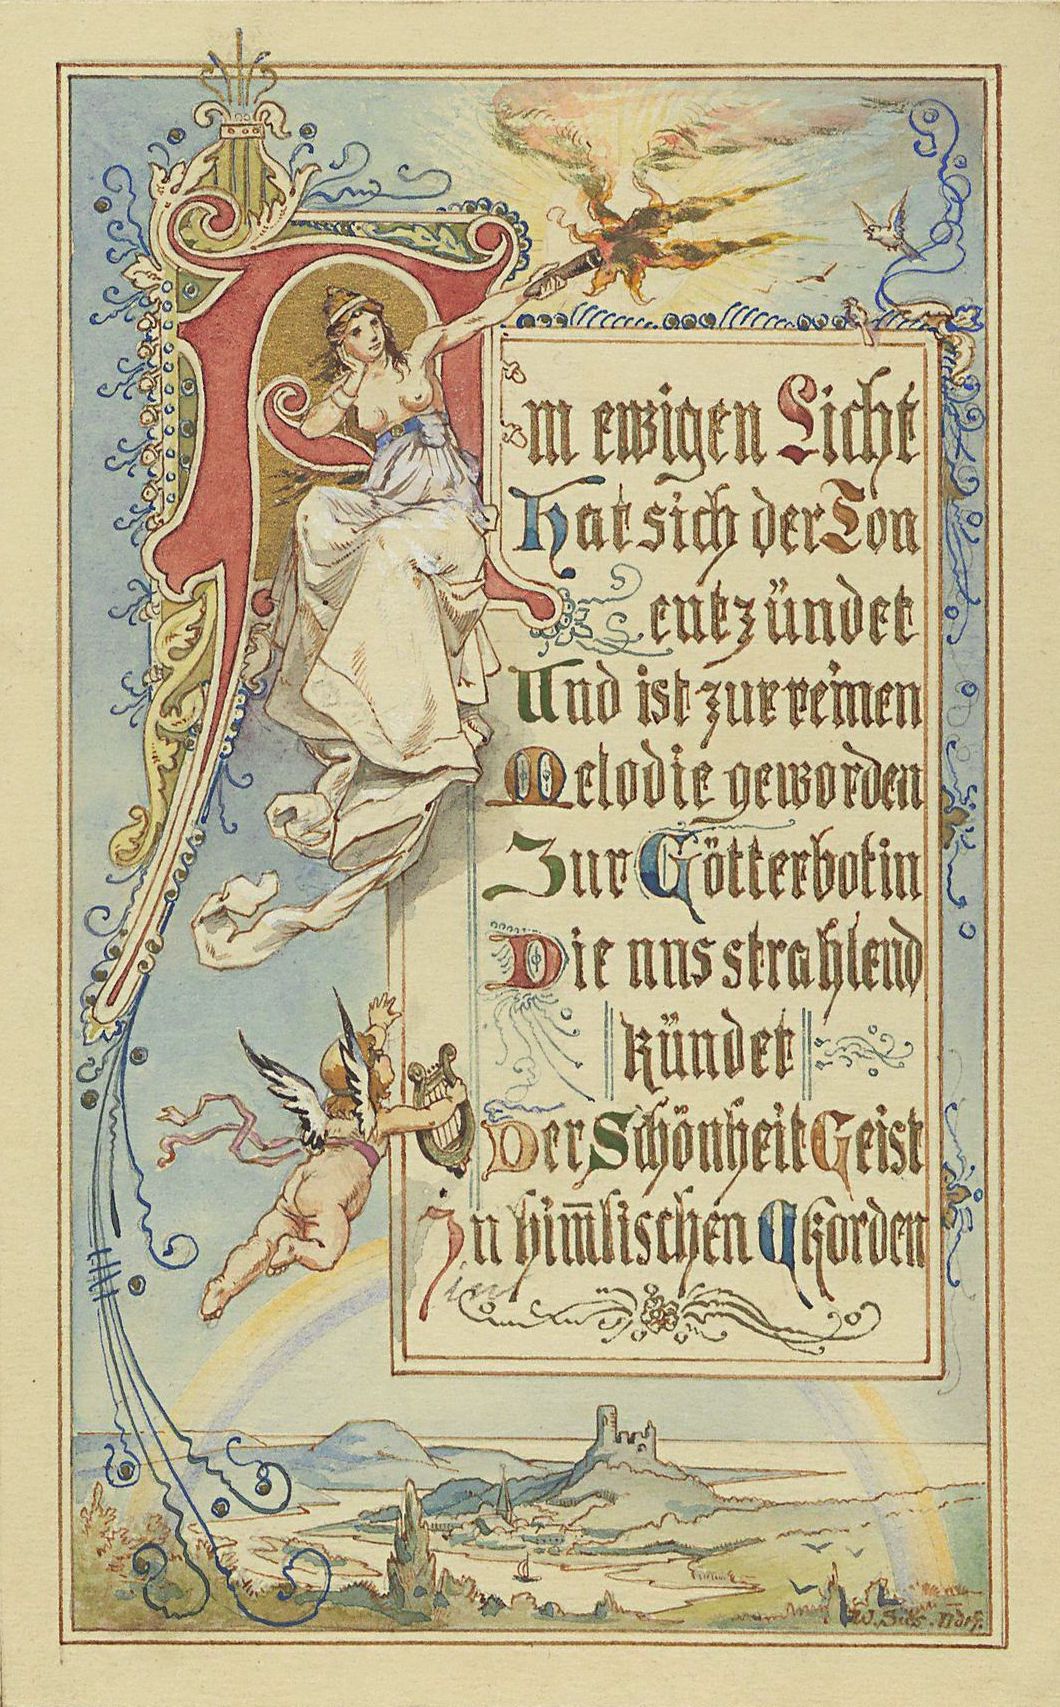 Am ewigen Licht
Hat sich der Ton
entzündet
Und ist zur reinen
Melodie geworden
Zur Götterbotin
Die uns strahlend
kündet
Der Schönheit Geist
In him̄lischen Akorden
im